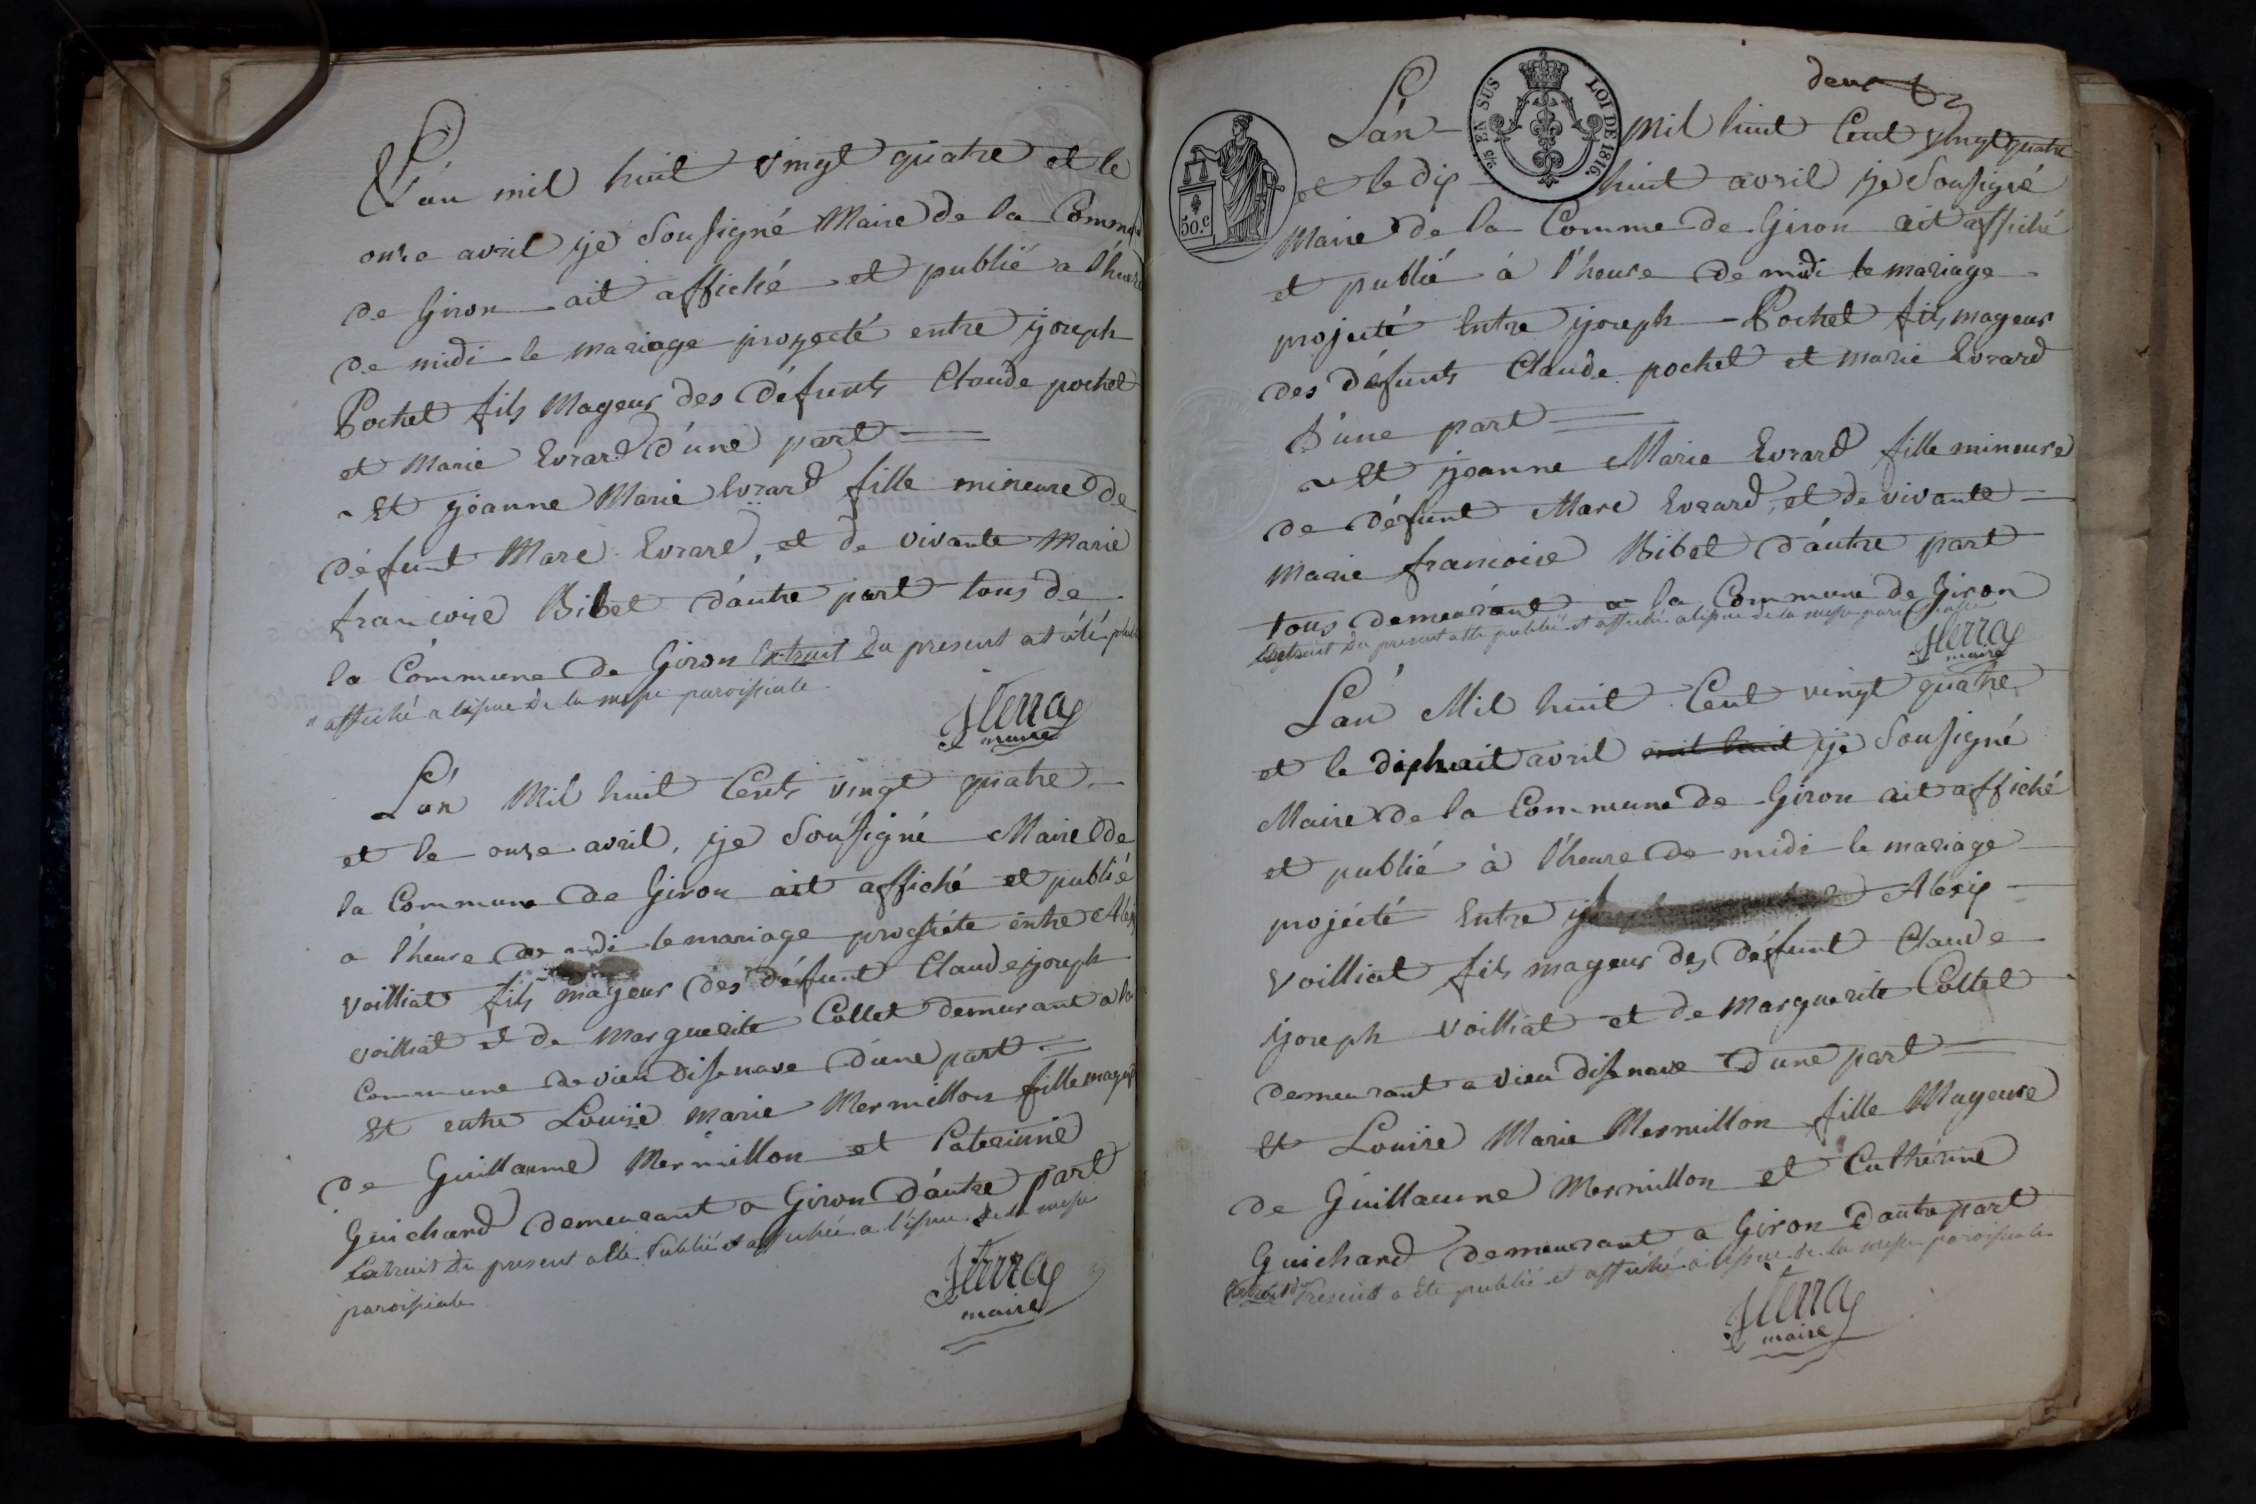 L'an mil huit vingt quatre et le
onze avril je Soussigné Maire de la Commune
de Giron ait affiché et publié a l'heure
de midi le mariage proyecté entre joseph
Pochet fils Mageur des défunts Claude pochet
et Marie Evrard d'une part
Et jeanne Marie Evrard fille mineure de
défunt Marc Evrard, et de vivante Marie
francoise Bibet d'autre part tous de
la Commune de Giron Extrait du present a été publié
et affiché a lissue de la messe paroissiale
JTerraz
maire
L'an Mil huit Cents vingt quatre
et le onze avril, je Soussigné Maire de
la Commune de Giron ait affiché et publié
a l'heure de midi le mariage entre Alexis
Voilliat fils mageur des défunt Claude joseph
voilliat et de Marguerite Collet demeurant a la
Commune de vieu disenave d'une part
Et entre Louise Marie Mermillon fille mageure
de Guillaume Mermillon et Caterinne
Guichard demeurant a Giron d'autre part
Extrait du present a été Publié et affichée a l'issue de la messe
paroissiale
JTerraz
maire
deux
50.C
EN SUS LOI DE 1816
L'an mil huit Cent vingt quatre
et le dix huit avril je Soussigné
Maire de la Comme de Giron ait affiché
et publié à l'heure de midi le mariage
projecté Entre joseph Pochet fils mageur
des défunts Claude pochet et marie Evrard
D'une part
Et jeanne Marie Evrard fille mineure
de défunt Marc Evrard, et de vivante
Marie francoise Bibet d'autre part
tous demeurant a la Commune de Giron
Extrait du present a été publié et affiché a lissue de la messe paroissialle
JTerraz
maire
L'an Mil huit Cent vingt quatre
et le dixhuit avril mil huit je Soussigné
Maire de la Commune de Giron ait affiché
et publié à l'heure de midi le mariage
projécté Entre Alexis
Voilliat fils mageur des défunt Claude
joseph Voilliat et de Marguerite Collet
demeurant a vieu disenave d'une part
Et Louise Marie Mermillon fille Mageure
de Guillaume Mermillon et Cathérine
Guichard demeurant a Giron d'autre part
Extrait du Present a été publié et affiché a lissue de la messe paroissiale
JTerraz
maire